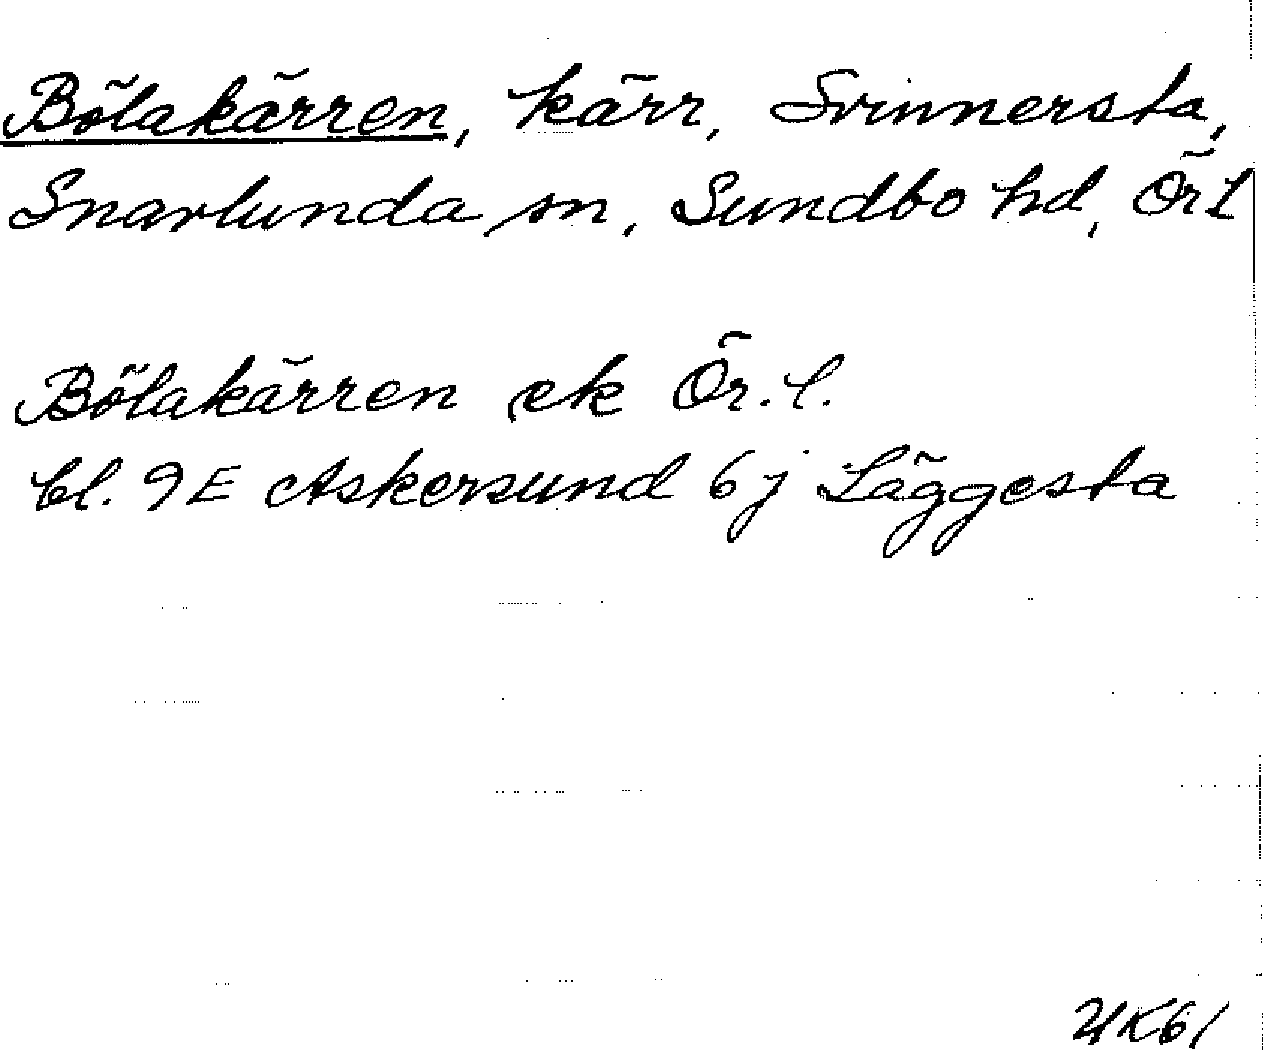 Bölakärren, kärr, Svinnersta,
Snavlunda sn, Sundbo hd, Ör l
Bölakärren ek Ör. l.
bl. 9E Askersund 6j Läggesta
UK61